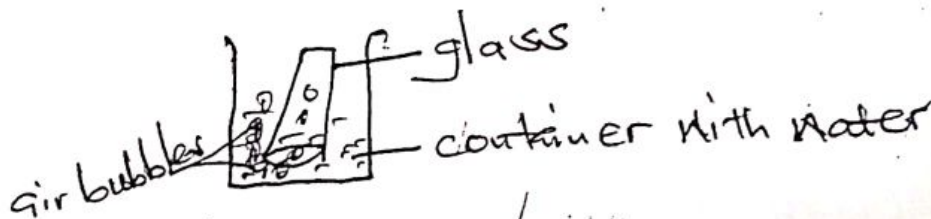 glass
container with water
air bubbles